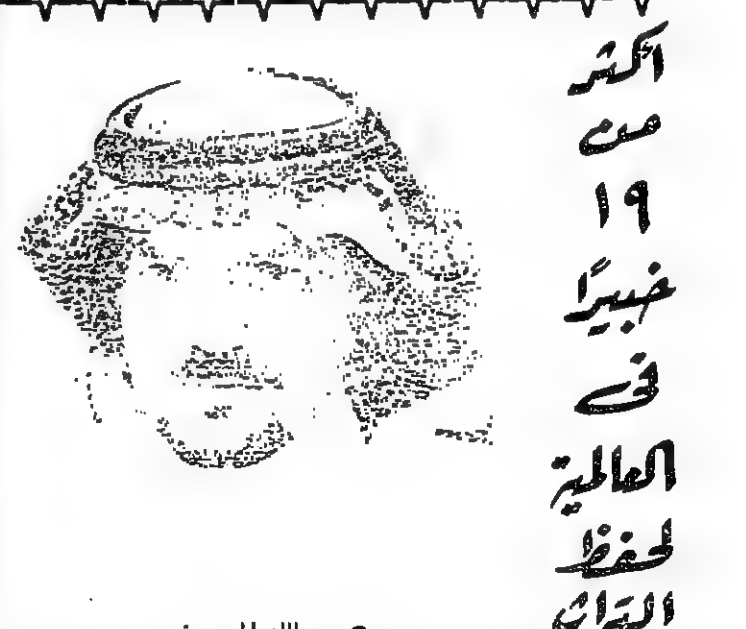 أكثر
من
١٩
خبيرًا
فى
العالمية
لحفظ
التراث